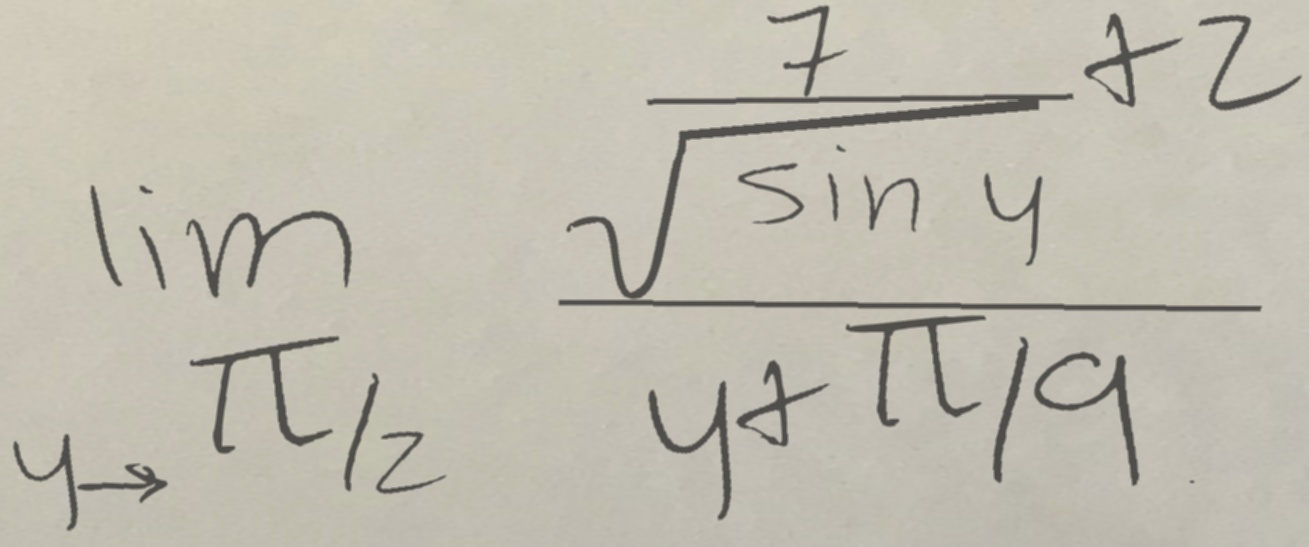 lim y→π/2 (7/√(sin y) + 2)/(y + π/9)